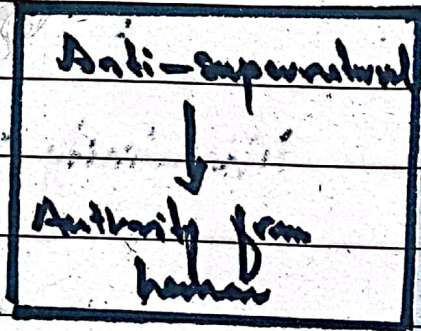 Anti-supernatural
↓
Authority from
human